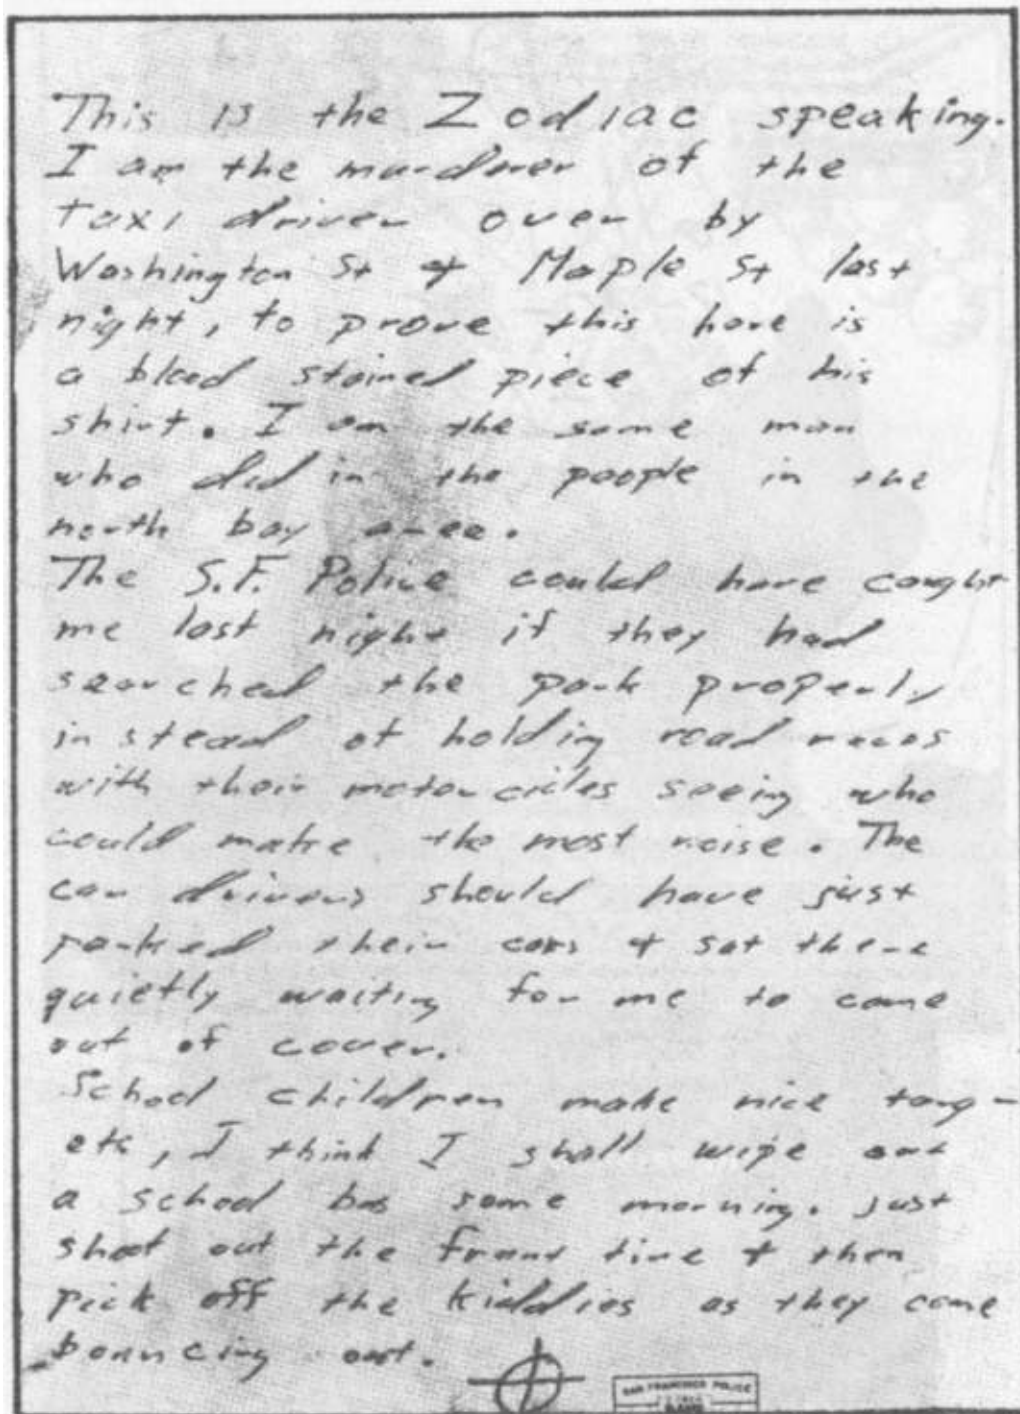 This is the Zodiac speaking.
I am the murderer of the
taxi driver over by
Washington St + Maple St last
night, to prove this here is
a blood stained piece of his
shirt. I am the same man
who did in the people in the
north bay area.
The S.F. Police could have caught
me last night if they had
searched the park properly
instead of holding road races
with their motorcicles seeing who
could make the most noise. The
car drivers should have just
parked their cars + sat there
quietly waiting for me to come
out of cover.
School children make nice targ-
ets, I think I shall wipe out
a school bus some morning. Just
shoot out the front tire + then
pick off the kiddies as they come
bouncing out.
SAN FRANCISCO POLICE